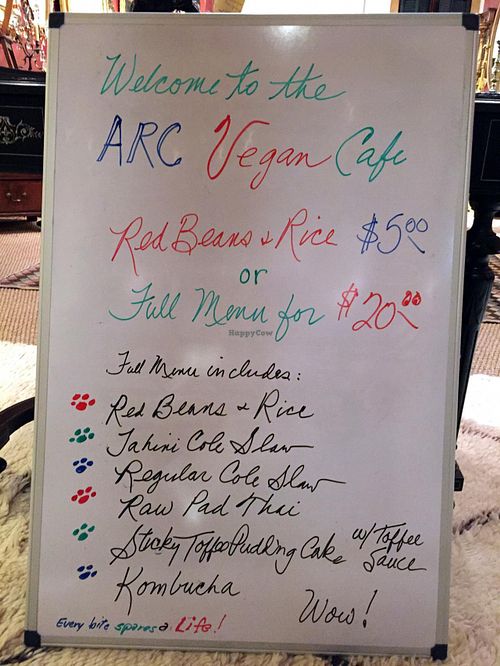 Welcome to the
ARC Vegan Cafe
Red Beans & Rice $5.00
or
Full Menu for $20.00
HappyCow
Full Menu includes:
Red Beans & Rice
Tahini Cole Slaw
Regular Cole Slaw
Raw Pad Thai
Sticky Toffee Pudding Cake w/ Toffee Sauce
Kombucha
Wow!
Every bite spares a Life!